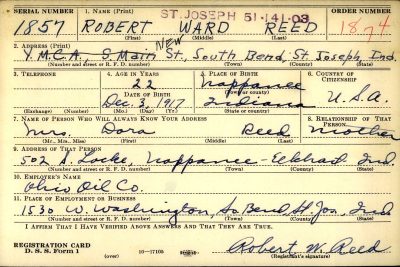 SERIAL NUMBER 1. NAME (Print) ST. JOSEPH 51-141-03 ORDER NUMBER
1857 ROBERT WARD REED 1874
(First) (Middle) (Last)
2. ADDRESS (Print) NEW
Y.M.C.A. S. Main St., South Bend, St. Joseph, Ind.
(Number and street or R. F. D. number) (Town) (County) (State)
3. TELEPHONE 4. AGE IN YEARS 5. PLACE OF BIRTH 6. COUNTRY OF CITIZENSHIP
22 Nappanee
DATE OF BIRTH (Town or county)
Dec. 3, 1917 Indiana U.S.A.
(Exchange) (Number) (Mo.) (Day) (Yr.) (State or country)
7. NAME OF PERSON WHO WILL ALWAYS KNOW YOUR ADDRESS 8. RELATIONSHIP OF THAT PERSON
Mrs. Dora Reed Mother
(Mr., Mrs., Miss) (First) (Middle) (Last)
9. ADDRESS OF THAT PERSON
502 S. Locke, Nappanee - Elkhart Ind.
(Number and street or R. F. D. number) (Town) (County) (State)
10. EMPLOYER'S NAME
Ohio Oil Co.
11. PLACE OF EMPLOYMENT OR BUSINESS
1530 W. Washington, So. Bend, St. Jos., Ind
(Number and street or R. F. D. number) (Town) (County) (State)
I AFFIRM THAT I HAVE VERIFIED ABOVE ANSWERS AND THAT THEY ARE TRUE.
REGISTRATION CARD
D. S. S. Form 1 16-17105 Robert W. Reed
(Registrant's signature)